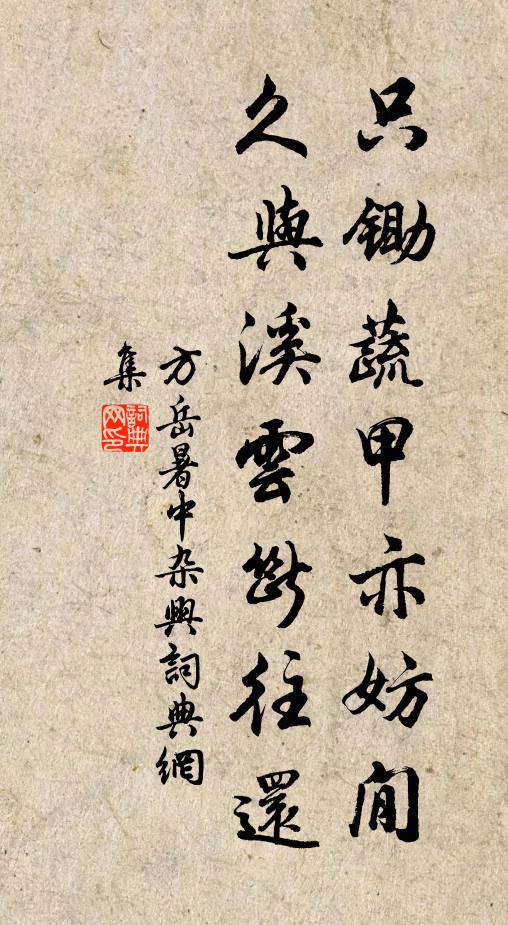 只鋤蔬甲亦妨閒
久與溪雲斷往還
方岳暑中杂興詞典網
集
詞典网印